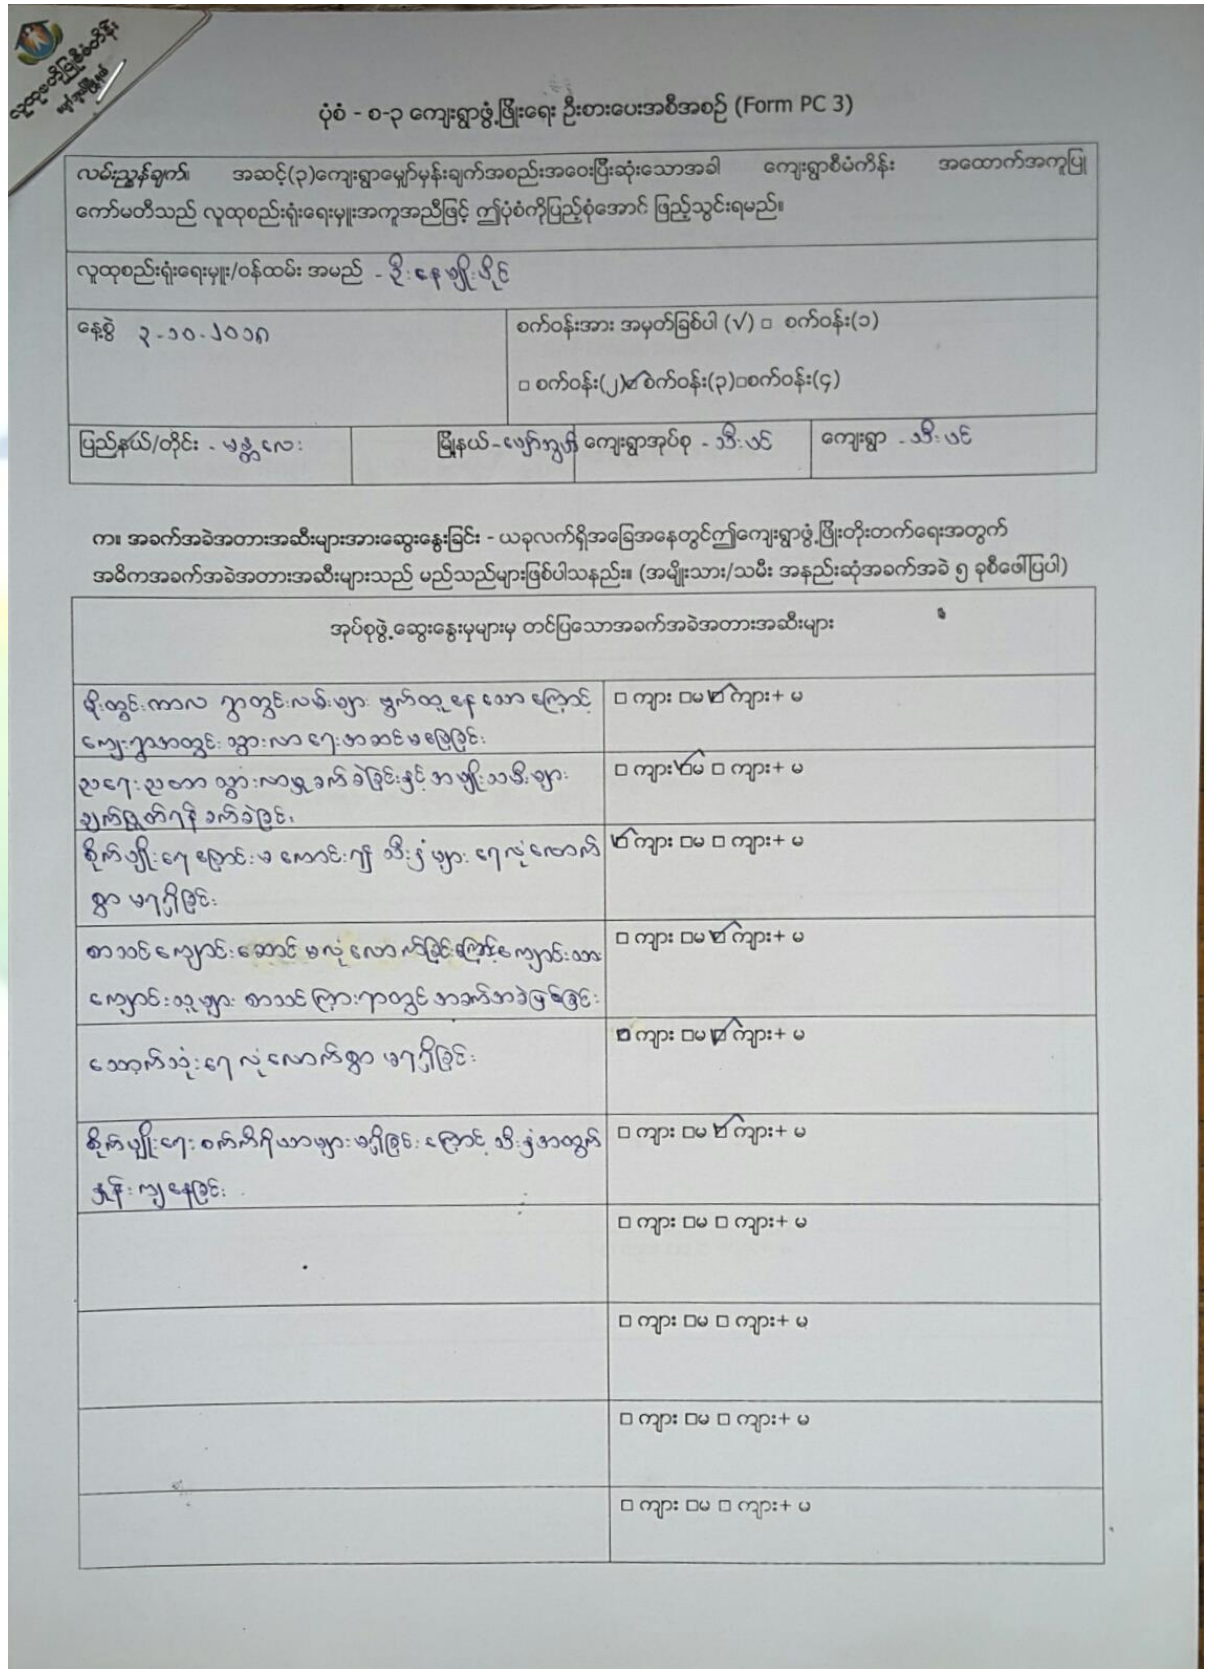 လူထုဗဟိုပြုစီမံကိန်း
ပုံစံ - စ-၃ ကျေးရွာဖွံ့ဖြိုးရေး ဦးစားပေးအစီအစဉ် (Form PC 3)
လမ်းညွှန်ချက်။ အဆင့်(၃)ကျေးရွာမျှော်မှန်းချက်အစည်းအဝေးပြီးဆုံးသောအခါ ကျေးရွာစီမံကိန်း အထောက်အကူပြု
ကော်မတီသည် လူထုစည်းရုံးရေးမှူးအကူအညီဖြင့် ဤပုံစံကိုပြည့်စုံအောင် ဖြည့်သွင်းရမည်။
လူထုစည်းရုံးရေးမှူး/ဝန်ထမ်း အမည် - ဦးနေမျိုးပိုင်
နေ့စွဲ ၃-၁၀-၂၀၁၈
စက်ဝန်းအား အမှတ်ခြစ်ပါ (√) □ စက်ဝန်း(၁)
□ စက်ဝန်း(၂) ☑ စက်ဝန်း(၃) □ စက်ဝန်း(၄)
ပြည်နယ်/တိုင်း - မန္တလေး မြို့နယ် - ပျော်ဘွယ် ကျေးရွာအုပ်စု - သီးပင် ကျေးရွာ - သီးပင်
က။ အခက်အခဲအတားအဆီးများအားဆွေးနွေးခြင်း - ယခုလက်ရှိအခြေအနေတွင်ဤကျေးရွာဖွံ့ဖြိုးတိုးတက်ရေးအတွက်
အဓိကအခက်အခဲအတားအဆီးများသည် မည်သည်များဖြစ်ပါသနည်း။ (အမျိုးသား/သမီး အနည်းဆုံအခက်အခဲ ၅ ခုစီဖေါ်ပြပါ)
အုပ်စုဖွဲ့ဆွေးနွေးမှုများမှ တင်ပြသောအခက်အခဲအတားအဆီးများ
မိုးတွင်းကာလ ရွာတွင်းလမ်းများ ဗွက်ထူနေသောကြောင့် □ ကျား □မ ☑ ကျား+ မ
ကျေးရွာအတွင်း သွားလာရေးအဆင်မပြေခြင်း
ညရေးညတာ သွားလာမှုခက်ခဲခြင်းနှင့် အမျိုးသမီးများ □ ကျား ☑မ □ ကျား+ မ
ချက်ပြုတ်ရန် ခက်ခဲခြင်း
စိုက်ပျိုးရေမြောင်းမကောင်း၍ သီးနှံများ ရေလုံလောက် ☑ ကျား □မ □ ကျား+ မ
စွာ မရရှိခြင်း
စာသင်ကျောင်းဆောင် မလုံလောက်ခြင်းကြောင့်ကျောင်းသား □ ကျား □မ ☑ ကျား+ မ
ကျောင်းသူများ စာသင်ကြားရာတွင် အခက်အခဲဖြစ်ခြင်း
သောက်သုံးရေ လုံလောက်စွာ မရရှိခြင်း □ ကျား □မ ☑ ကျား+ မ
စိုက်ပျိုးရေး စက်ကိရိယာများမရှိခြင်းကြောင့် သီးနှံအထွက် □ ကျား □မ ☑ ကျား+ မ
နှုန်းကျနေခြင်း
□ ကျား □မ □ ကျား+ မ
□ ကျား □မ □ ကျား+ မ
□ ကျား □မ □ ကျား+ မ
□ ကျား □မ □ ကျား+ မ